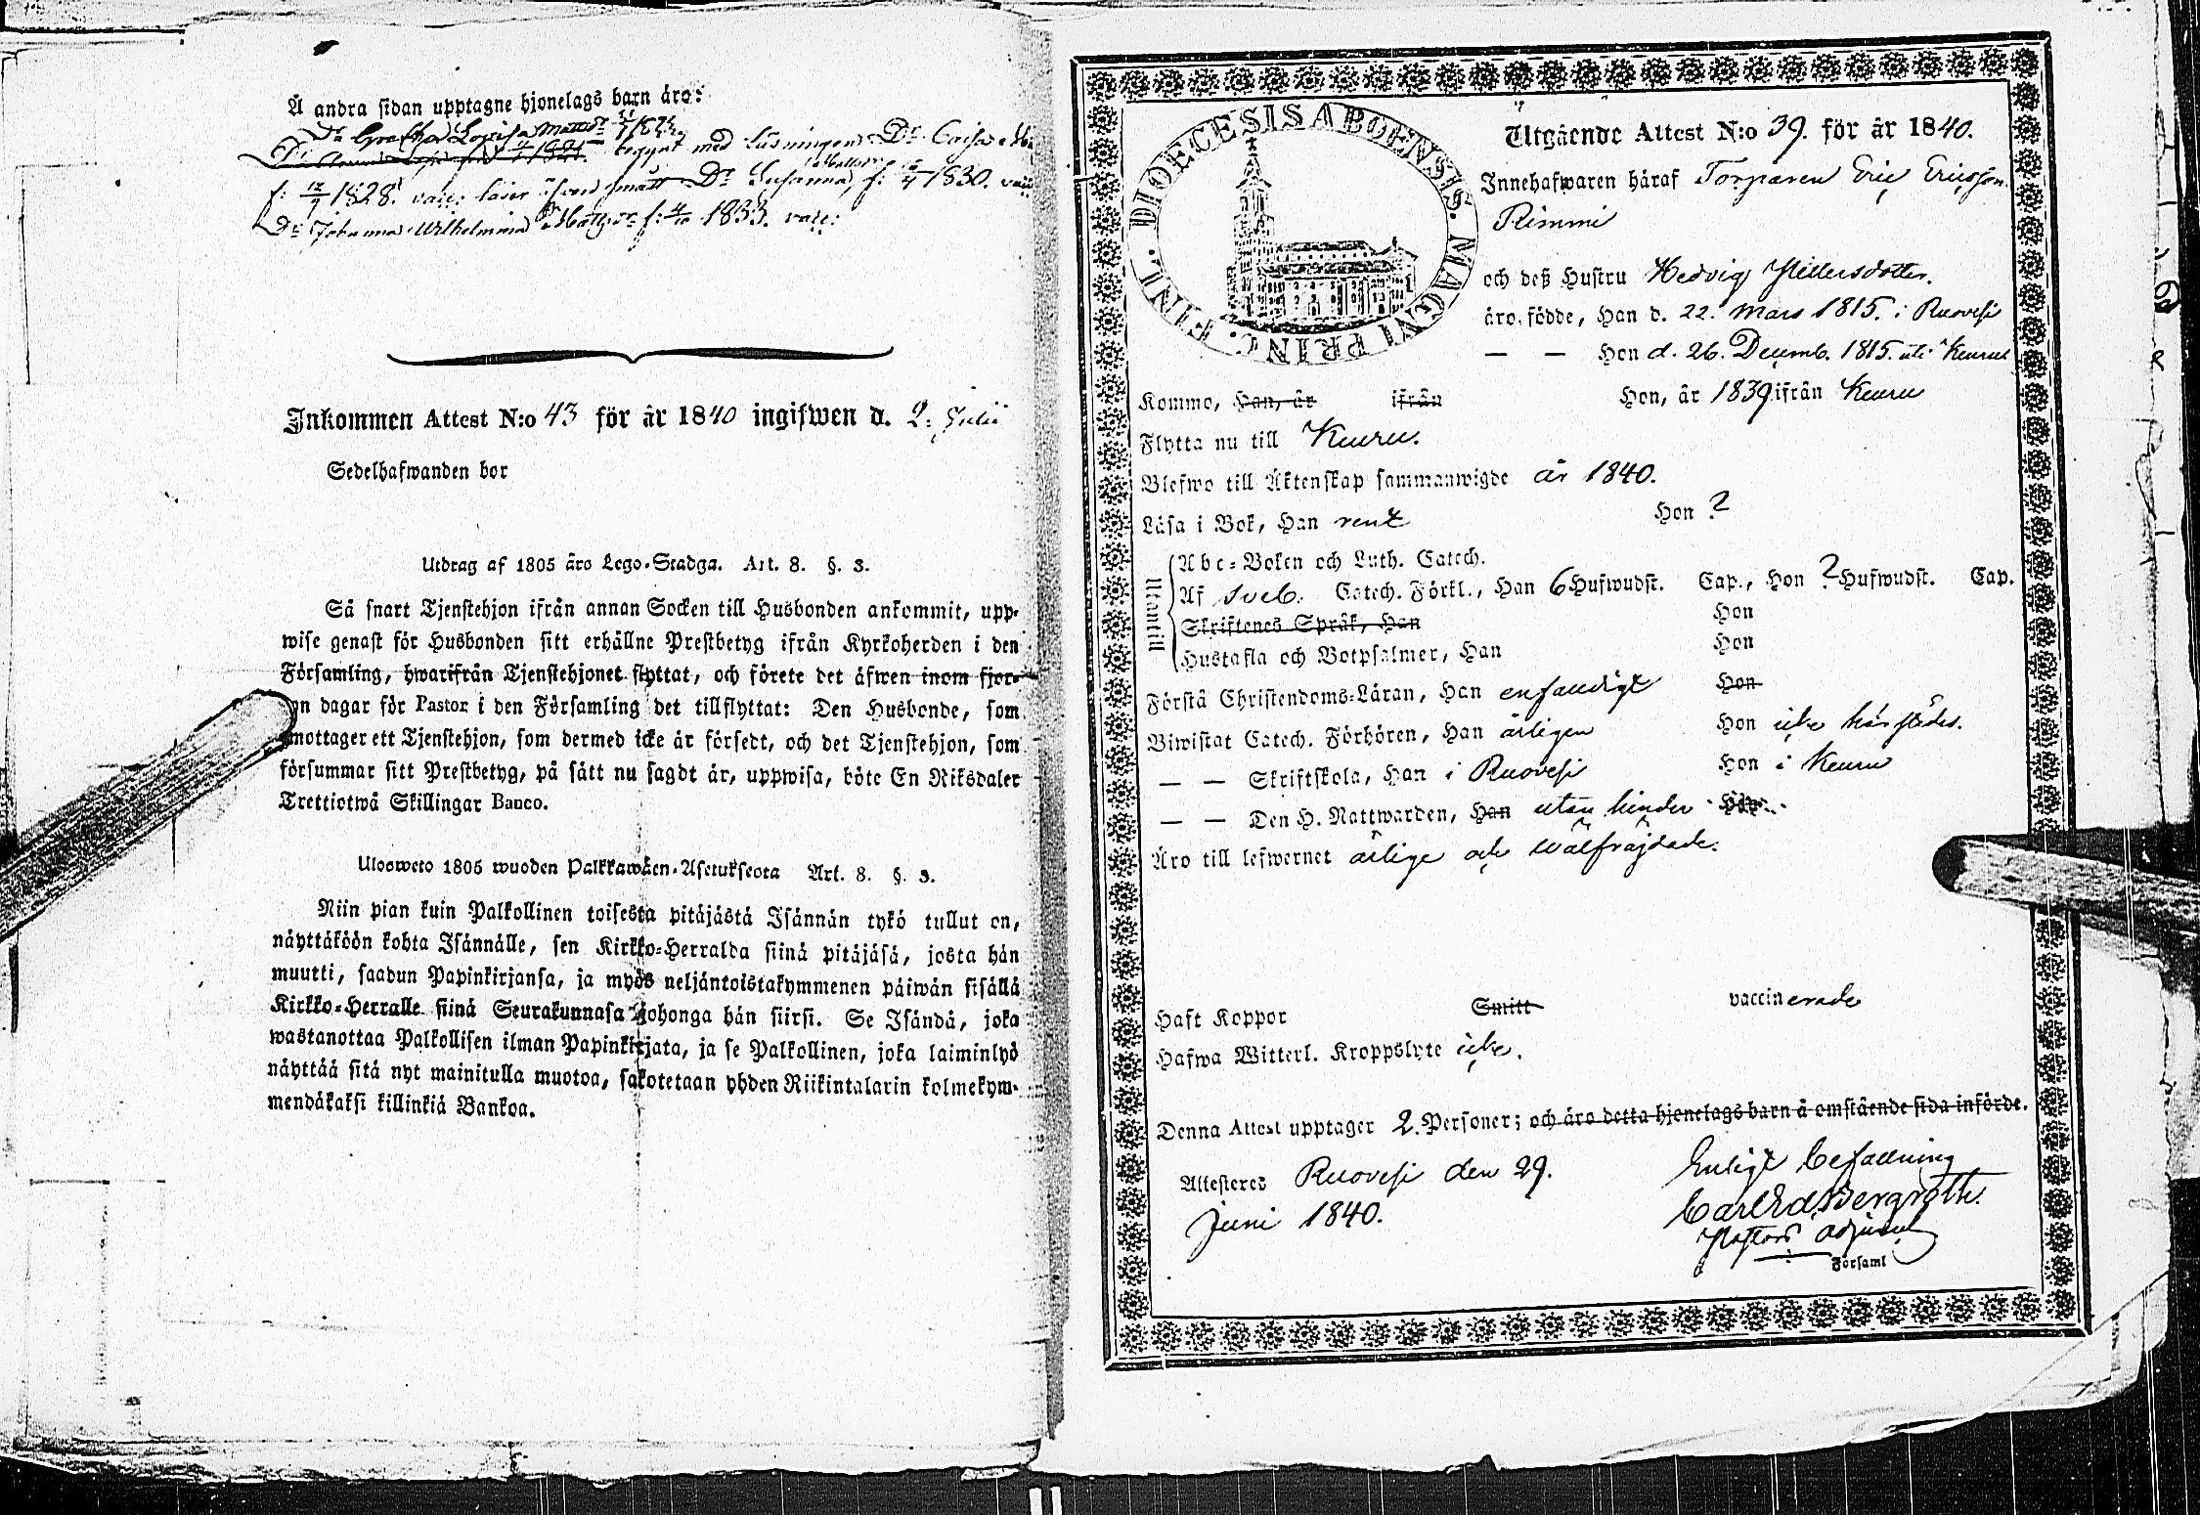 Å andra sidan upptagne hjonelags barn äro:
Dr Gretha Lovisa Mattsdr 1825
begynt med läsningen Dr Cajsa
f: 12/7 1828. vacc: läser äfven smått Dr Susanna, f: 5/4 1830. vacc
Dr Johanna Wilhelmina Mattsdr f: 4/10 1833. vacc:
Inkommen Attest N:o 43 för år 1840 ingifwen d. 2: Julii
Sedelhafwanden bor
Utdrag af 1805 års Lego-Stadga. Art. 8. §. 3.
Så snart Tjenstehjon ifrån annan Socken till Husbonden ankommit, upp-
wise genast för Husbonden sitt erhållne Prestbetyg ifrån Kyrkoherden i den
Församling, hwarifrån Tjenstehjonet flyttat, och förete det äfwen inom fjor-
on dagar för Pastor i den Församling det tillflyttat: Den Husbonde, som
mottager ett Tjenstehjon, som dermed icke är försedt, och det Tjenstehjon, som
försummar sitt Prestbetyg, på sätt nu sagdt är, uppwisa, böte En Riksdaler
Trettiotwå Skillingar Banco.
Ulosweto 1805 wuoden Palkkawäen-Asetuksesta Art. 8. §. 3.
Niin pian kuin Palkollinen toisesta pitäjästä Isännän tykö tullut on,
näyttäköön kohta Isännälle, sen Kirkko-Herralda siinä pitäjäsä, josta hän
muutti, saadun Papinkirjansa, ja myös neljäntoistakymmenen päiwän sisällä
Kirkko-Herralle siinä Seurakunnasa johonga hän siirsi. Se Isändä, joka
wastanottaa Palkollisen ilman Papinkirjata, ja se Palkollinen, joka laiminlyö
näyttää sitä nyt mainitulla muotoa, sakotetaan yhden Riikintalarin kolmekym-
mendäkaksi killinkiä Bankoa.
DIOECESIS ABOENSIS. MAGNI PRINC. FINL.
Utgående Attest N:o 39. för år 1840.
Innehafwaren häraf Torparen Eric Ericsson
Rimmi
och deß Hustru Hedvig Hillersdotter.
äro födde, Han d. 22. Mars 1815. i Ruovesi
— — Hon d. 26. Decemb. 1815. uti Keuru
Kommo, Han, år ifrån Hon, år 1839 ifrån Keuru
Flytta nu till Keuru.
Blefwo till Äktenskap sammanwigde år 1840.
Läsa i Bok, Han rent Hon ?
Utantill
Abc-Boken och Luth. Catech.
Af Sveb. Catech. Förkl., Han 6 Hufwudst. Cap., Hon ? Hufwudst. Cap.
Skriftenes Språk, Han Hon
Hustafla och Botpsalmer, Han Hon
Förstå Christendoms-Läran, Han enfaldigt Hon
Biwistat Catech. Förhören, Han årligen Hon icke härstädes.
— — Skriftskola, Han i Ruovesi Hon i Keuru
— — Den H. Nattwarden, Han utan hinder Hon
Äro till lefwernet ärlige och wälfräjdade.
Haft Koppor Smitt vaccinerade
Hafwa Witterl. Kroppslyte icke.
Denna Attest upptager 2. Personer; och äro detta hjonelags barn å omstående sida införde.
Attesteres Ruovesi den 29.
Juni 1840.
Enligt befallning
Carl Ed Bergroth.
Pastors adjunct
Församl